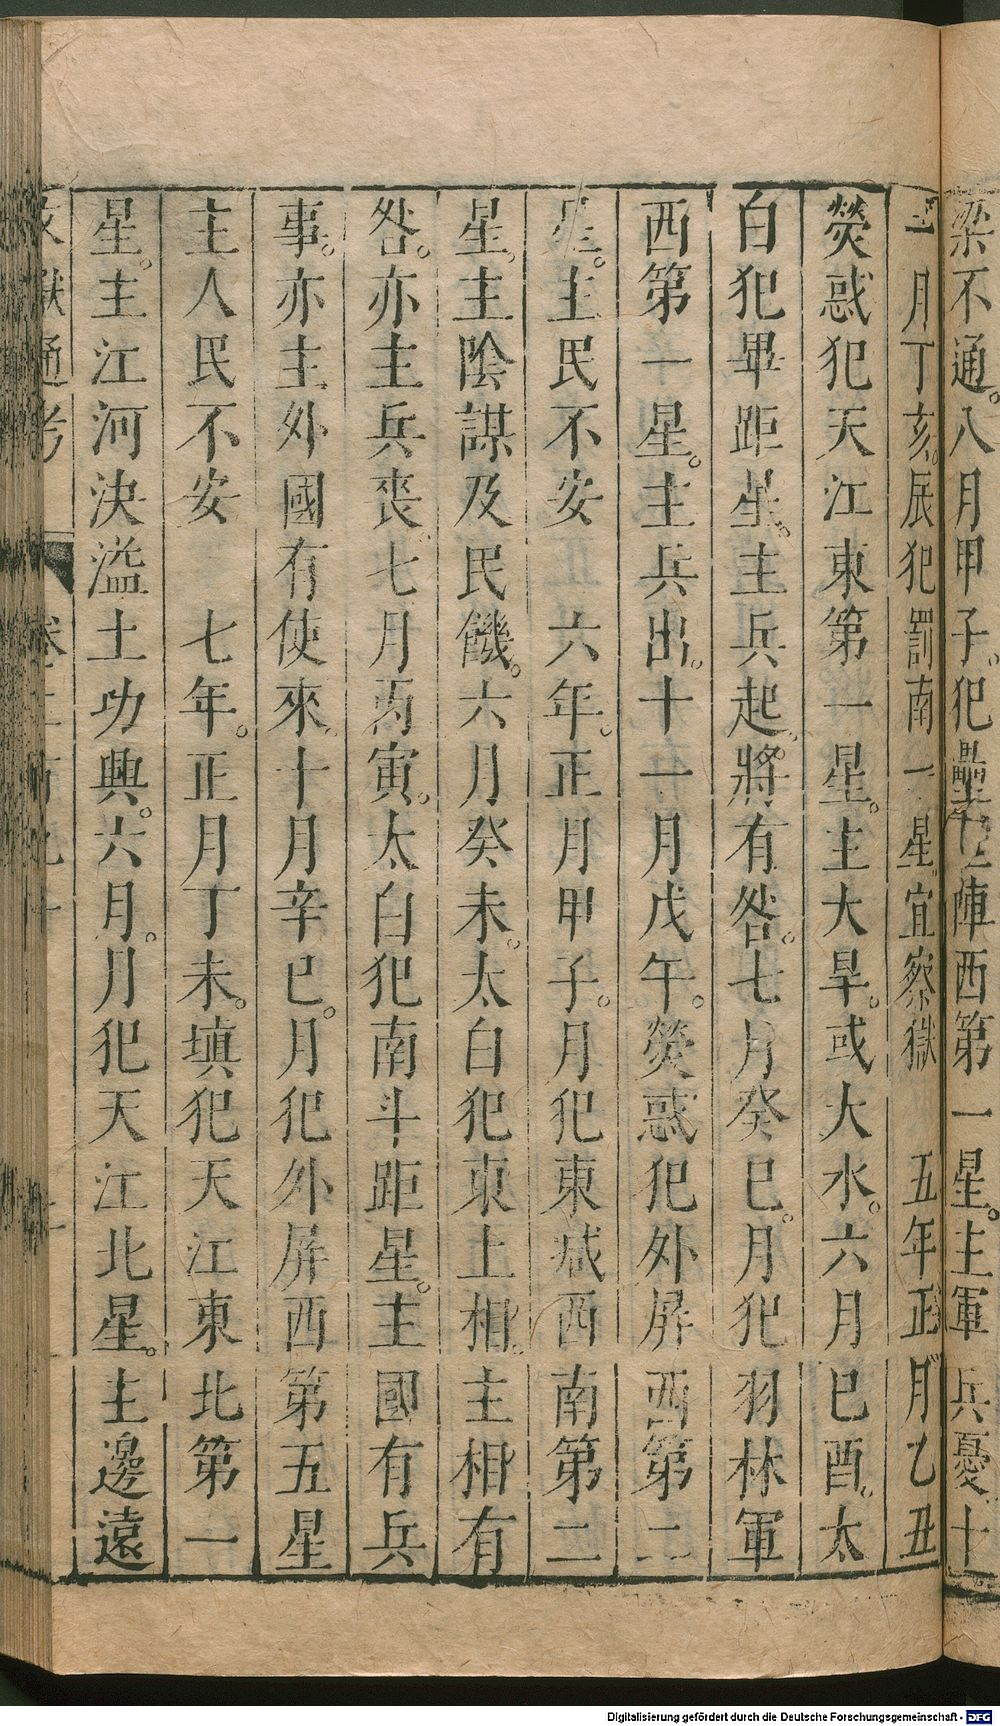 梁不通。八月甲子。犯壘壁陣西第一星。主軍兵憂。十
一月丁亥。辰犯罰南一星。宜察獄　五年正月乙丑
熒惑犯天江東第一星。主大旱。或大水。六月巳酉。太
白犯畢距星。主兵起。將有咎。七月癸巳。月犯羽林軍
西第一星。主兵出。十一月戊午。熒惑犯外屏西第二
星。主民不安　六年。正月甲子。月犯東咸西南第二
星。主陰謀及民饑。六月癸未。太白犯東上相。主相有
咎。亦主兵喪。七月丙寅。太白犯南斗距星。主國有兵
事。亦主外國有使來。十月辛巳。月犯外屏西第五星
主人民不安　七年。正月丁未。填犯天江東北第一
星。主江河決溢土功興。六月。月犯天江北星。主邊遠
文獻通考　卷二百九十
Digitalisierung gefördert durch die Deutsche Forschungsgemeinschaft - DFG